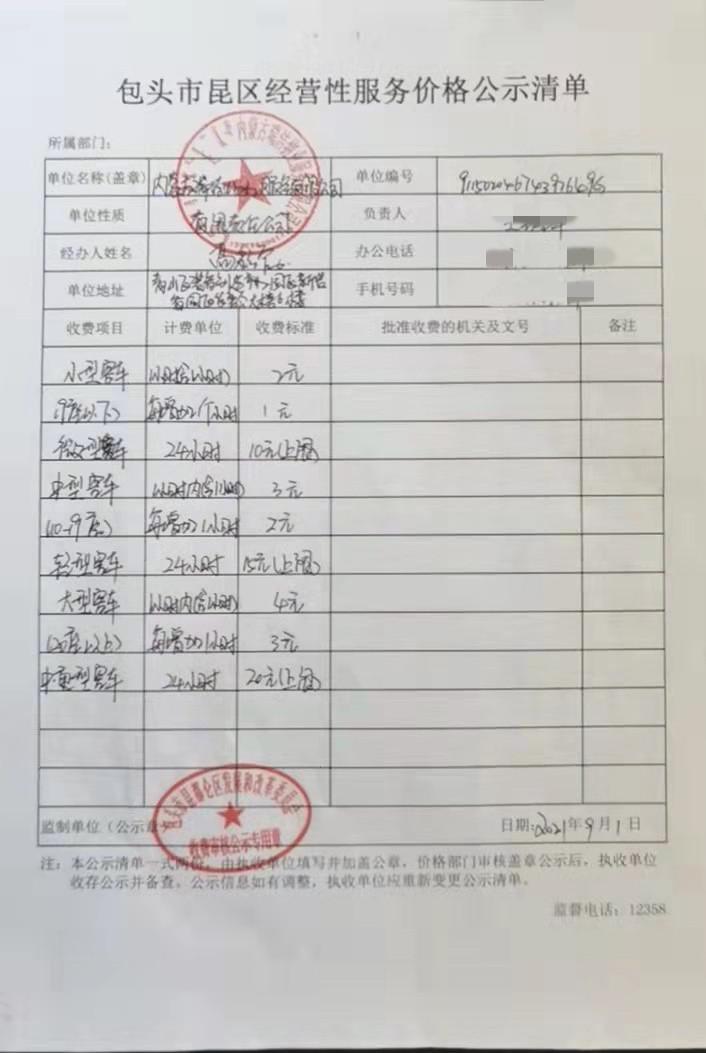 包头市昆区经营性服务价格公示清单
所属部门:
单位名称(盖章) 单位编号
单位性质 有限责任公司 负责人
经办人姓名 办公电话
单位地址 手机号码
收费项目 计费单位 收费标准 批准收费的机关及文号 备注
小型客车 2元
(9座以下) 每增加1个小时 1元
微型客车 24小时 10元(上限)
中型客车 3元
(10-19座) 每增加1小时 2元
轻型客车 24小时 15元(上限)
大型客车 4元
(20座以上) 每增加1小时 3元
中重型客车 24小时 20元(上限)
包头市昆都仑区发展和改革委员会
收费审核公示专用章
监制单位(公示章) 日期:2021年9月1日
注:本公示清单一式两份,由执收单位填写并加盖公章,价格部门审核盖章公示后,执收单位
收存公示并备查。公示信息如有调整,执收单位应重新变更公示清单。
监督电话:12358